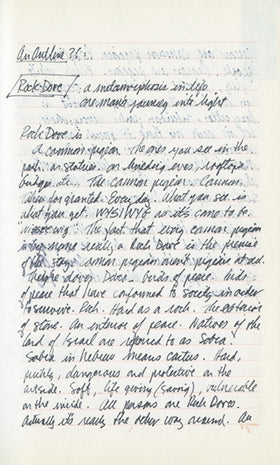 An Outline ?!:
Rock-Dove: a metamorphosis in life
one man's journey into light
Rock Dove is
A common pigeon. The ones you see in the
park on statues. on building eves, rooftops
bridges etc. The common pigeon. Common.
Taken for granted. Every day. What you see is
what you get. WYSIWYG as it's come to be
The fact that every common pigeon
is really a Rock Dove is the premise
of the story. common pigeons aren't pigeons at all.
They're doves. Doves. birds of peace. birds
of peace that have conformed to society in order
to survive. Rock. Hard as a rock. The exterior
of stone. An interior of peace. Natives of the
land of Israel are referred to as Sabra.
Sabra in Hebrew means cactus. Hard,
prickly, dangerous and protective on the
outside. Soft, life giving (saving), vulnerable
on the inside. All persons are Rock Doves.
Actually its really the other way around. An